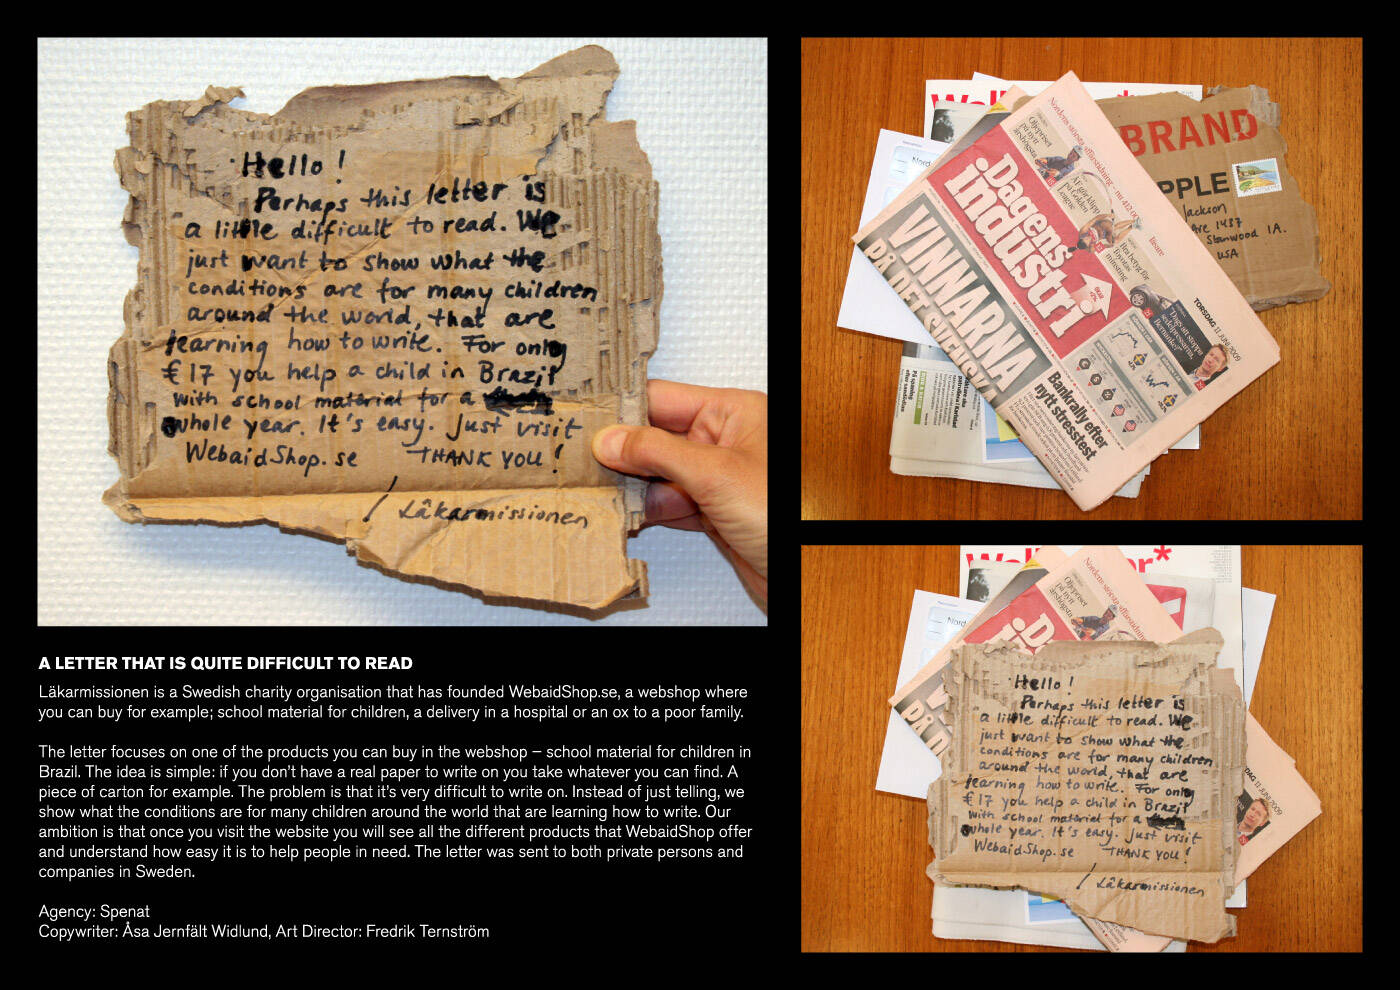 Hello !
Perhaps this letter is
a little difficult to read. We
just want to show what the
conditions are for many children
around the world, that are
learning how to write. For only
€ 17 you help a child in Brazil
with school material for a
whole year. It's easy. Just visit
WebaidShop.se THANK YOU !
/ Läkarmissionen
A LETTER THAT IS QUITE DIFFICULT TO READ
Läkarmissionen is a Swedish charity organisation that has founded WebaidShop.se, a webshop where
you can buy for example; school material for children, a delivery in a hospital or an ox to a poor family.
The letter focuses on one of the products you can buy in the webshop – school material for children in
Brazil. The idea is simple: if you don't have a real paper to write on you take whatever you can find. A
piece of carton for example. The problem is that it's very difficult to write on. Instead of just telling, we
show what the conditions are for many children around the world that are learning how to write. Our
ambition is that once you visit the website you will see all the different products that WebaidShop offer
and understand how easy it is to help people in need. The letter was sent to both private persons and
companies in Sweden.
Agency: Spenat
Copywriter: Åsa Jernfält Widlund, Art Director: Fredrik Ternström
Nordens största affärstidning
Oljepriset
på nytt
årshögsta
ÅF gör klipp
på Golden
League
Dagens
industri
VINNARNA
PÅ DET
Bankrally efter
nytt stresstest
TORSDAG 11 JUNI 2009
BRAND
PPLE
Jackson
1437
Stanwood IA.
USA
Nord
Nordens största affärstidning
Oljepriset
på nytt
årshögsta
Nord
11 JUNI 2009
Hello !
Perhaps this letter is
a little difficult to read. We
just want to show what the
conditions are for many children
around the world, that are
learning how to write. For only
€ 17 you help a child in Brazil
with school material for a
whole year. It's easy. Just visit
WebaidShop.se THANK YOU !
/ Läkarmissionen